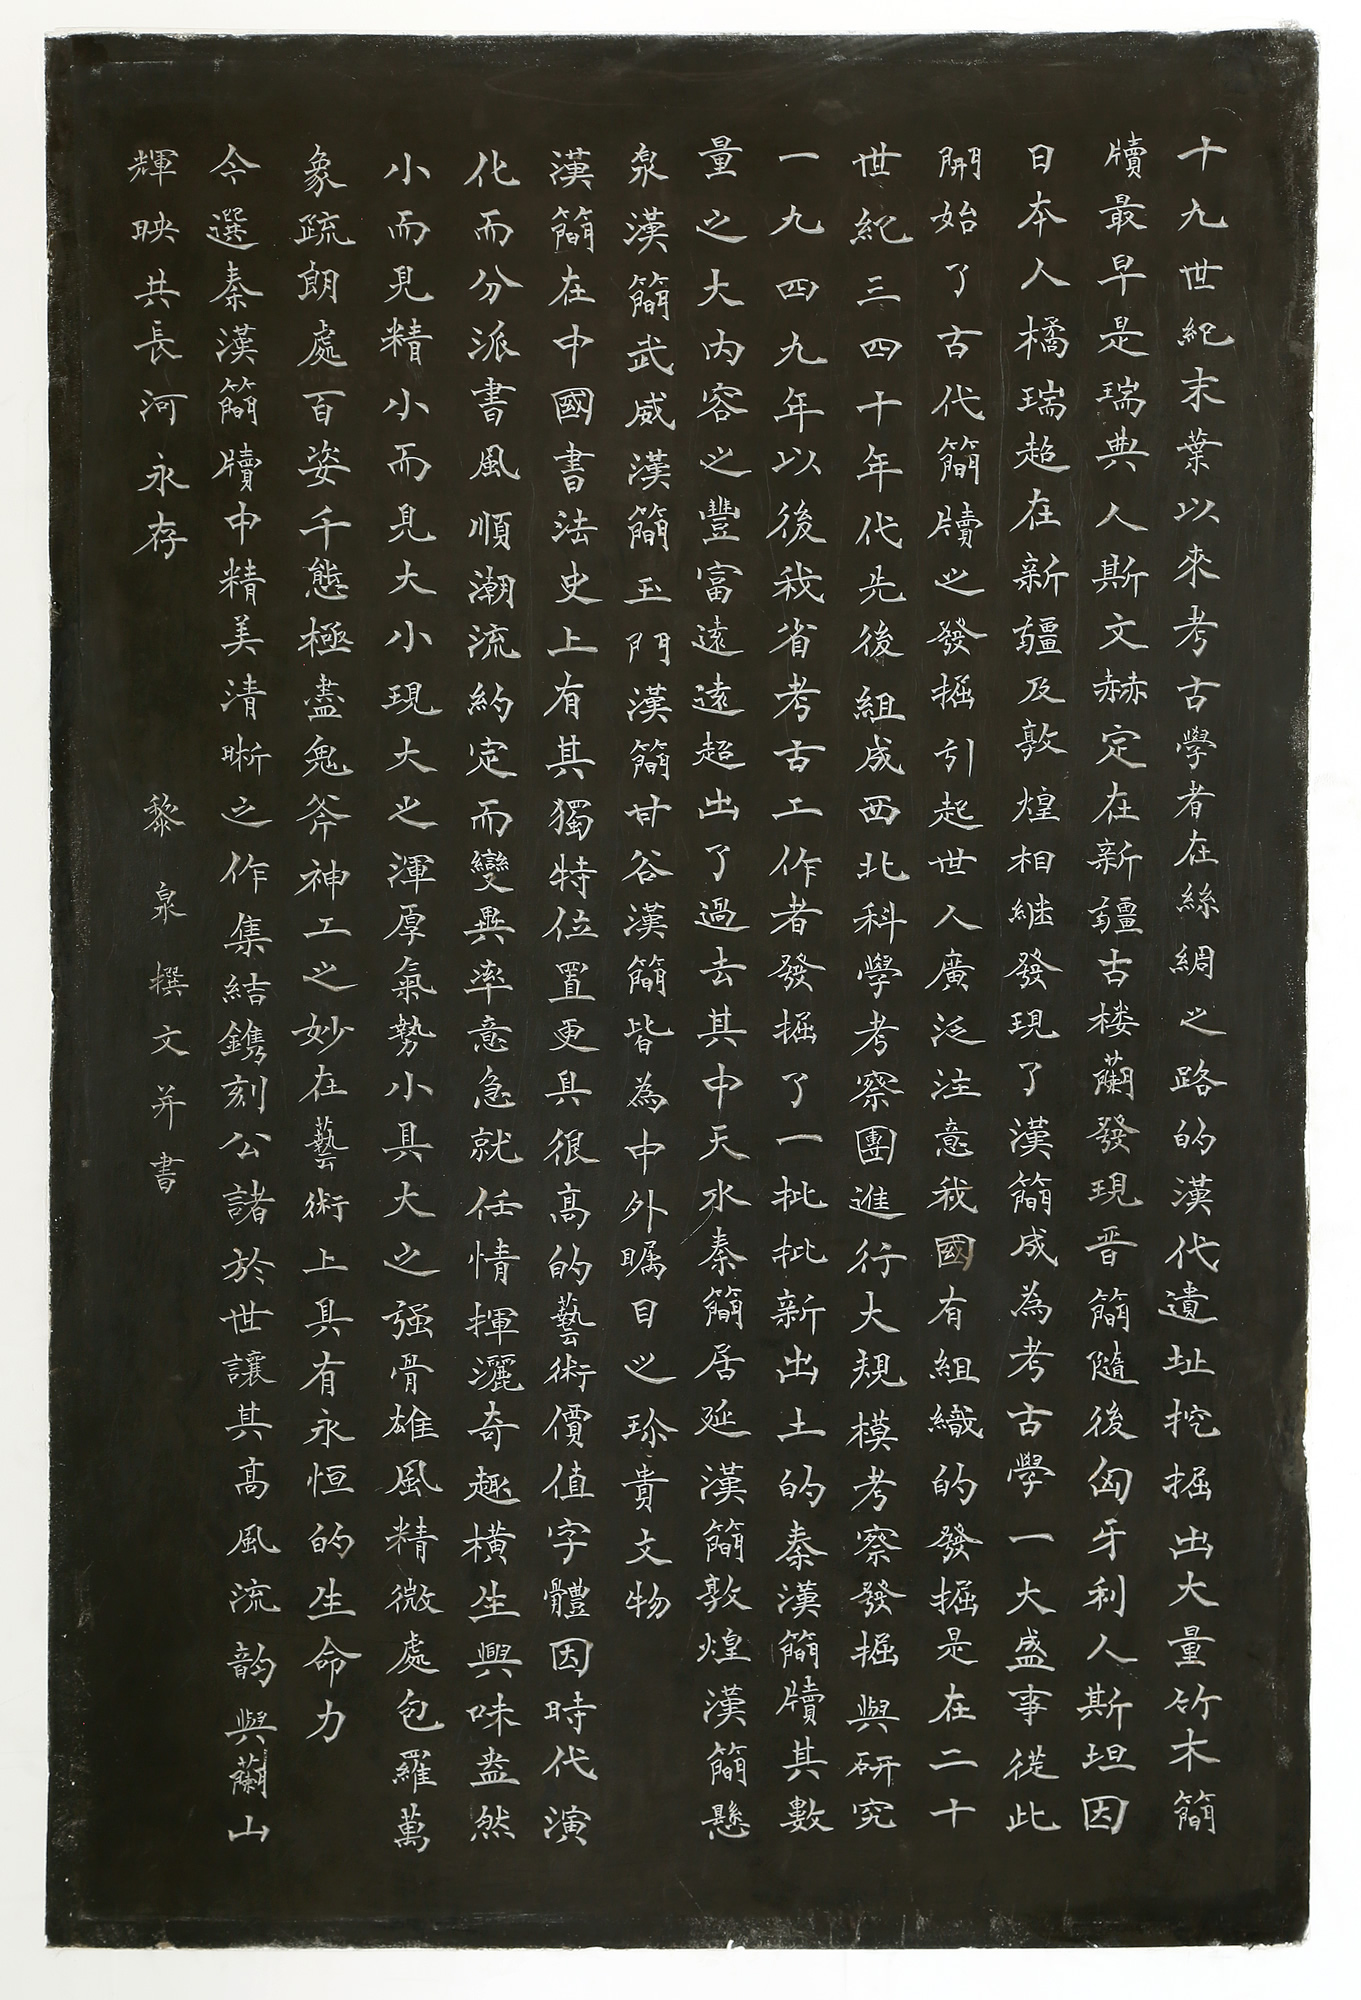 十九世紀末葉以來考古學者在絲綢之路的漢代遺址挖掘出大量竹木簡
牘最早是瑞典人斯文赫定在新疆古楼蘭發現晋簡隨後匈牙利人斯坦因
日本人橘瑞超在新疆及敦煌相継發現了漢簡成為考古學一大盛事從此
開始了古代簡牘之發掘引起世人廣泛注意我國有組織的發掘是在二十
世紀三四十年代先後組成西北科學考察團進行大規模考察發掘與研究
一九四九年以後我省考古工作者發掘了一批批新出土的秦漢簡牘其數
量之大內容之豐富遠遠超出了過去其中天水秦簡居延漢簡敦煌漢簡懸
泉漢簡武威漢簡玉門漢簡甘谷漢簡皆為中外矚目之珍貴文物
漢簡在中國書法史上有其獨特位置更具很高的藝術價值字體因時代演
化而分派書風順潮流約定而變異率意急就任情揮灑奇趣橫生興味盎然
小而見精小而見大小現大之渾厚氣勢小具大之强骨雄風精微處包羅萬
象疏朗處百姿千態極盡鬼斧神工之妙在藝術上具有永恒的生命力
今選秦漢簡牘中精美清晰之作集結鐫刻公諸於世讓其高風流韵與蘭山
輝映共長河永存
黎泉撰文并書